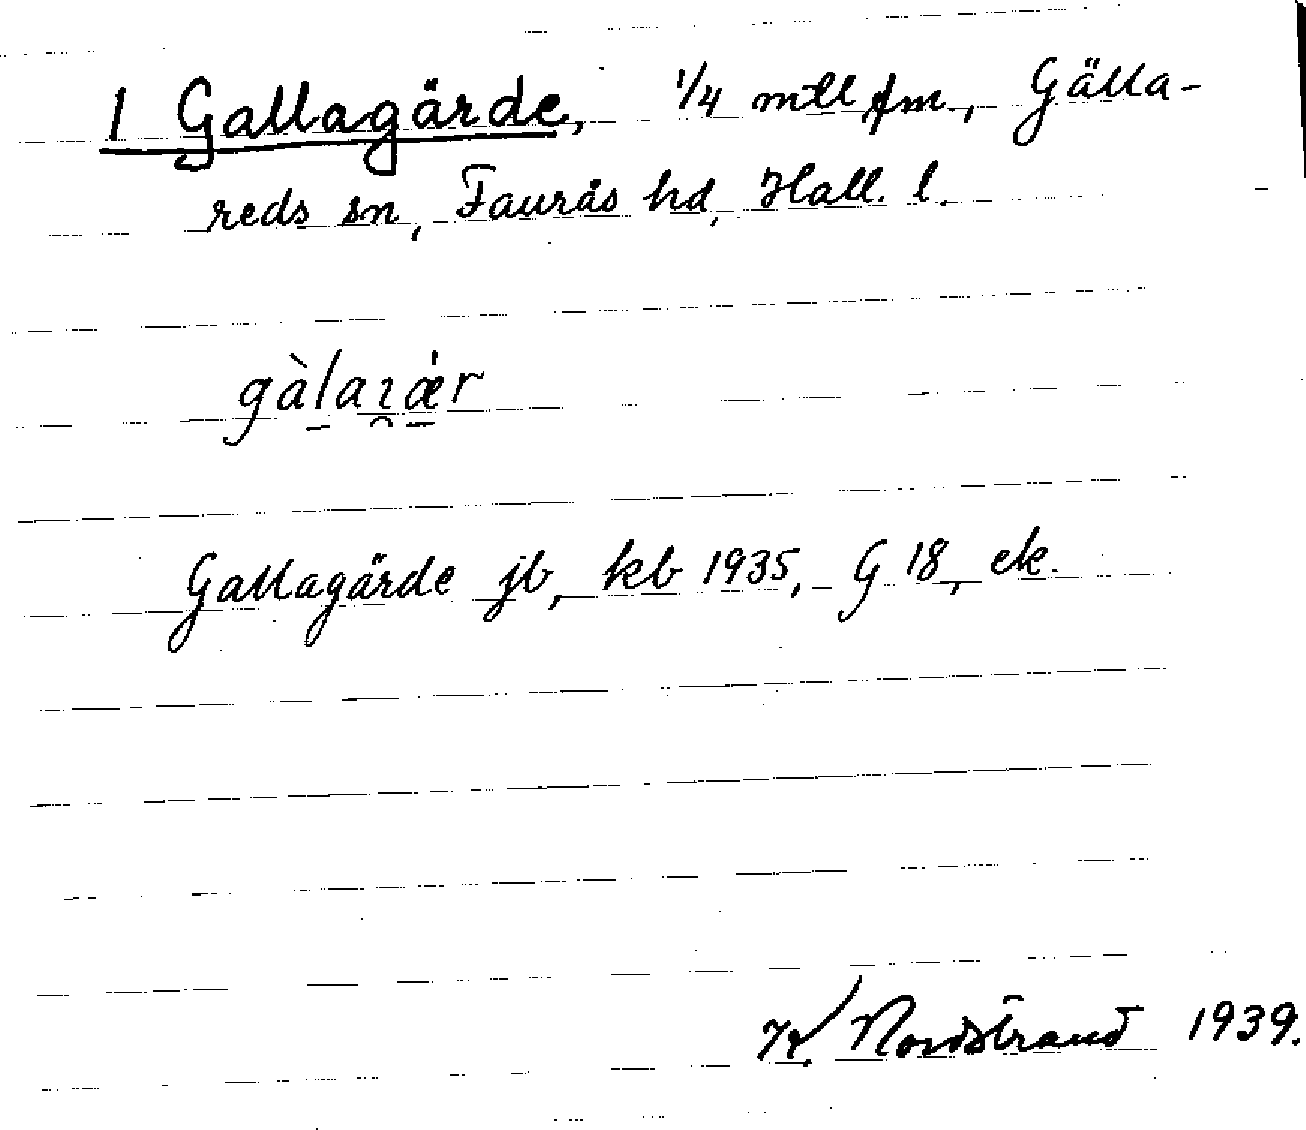 1 Gallagärde, 1/4 mtl fm., Gälla-
reds sn, Faurås hd, Hall. l.
Gallagärde jb, kb 1935, G 18, ek.
Nordstrand 1939.